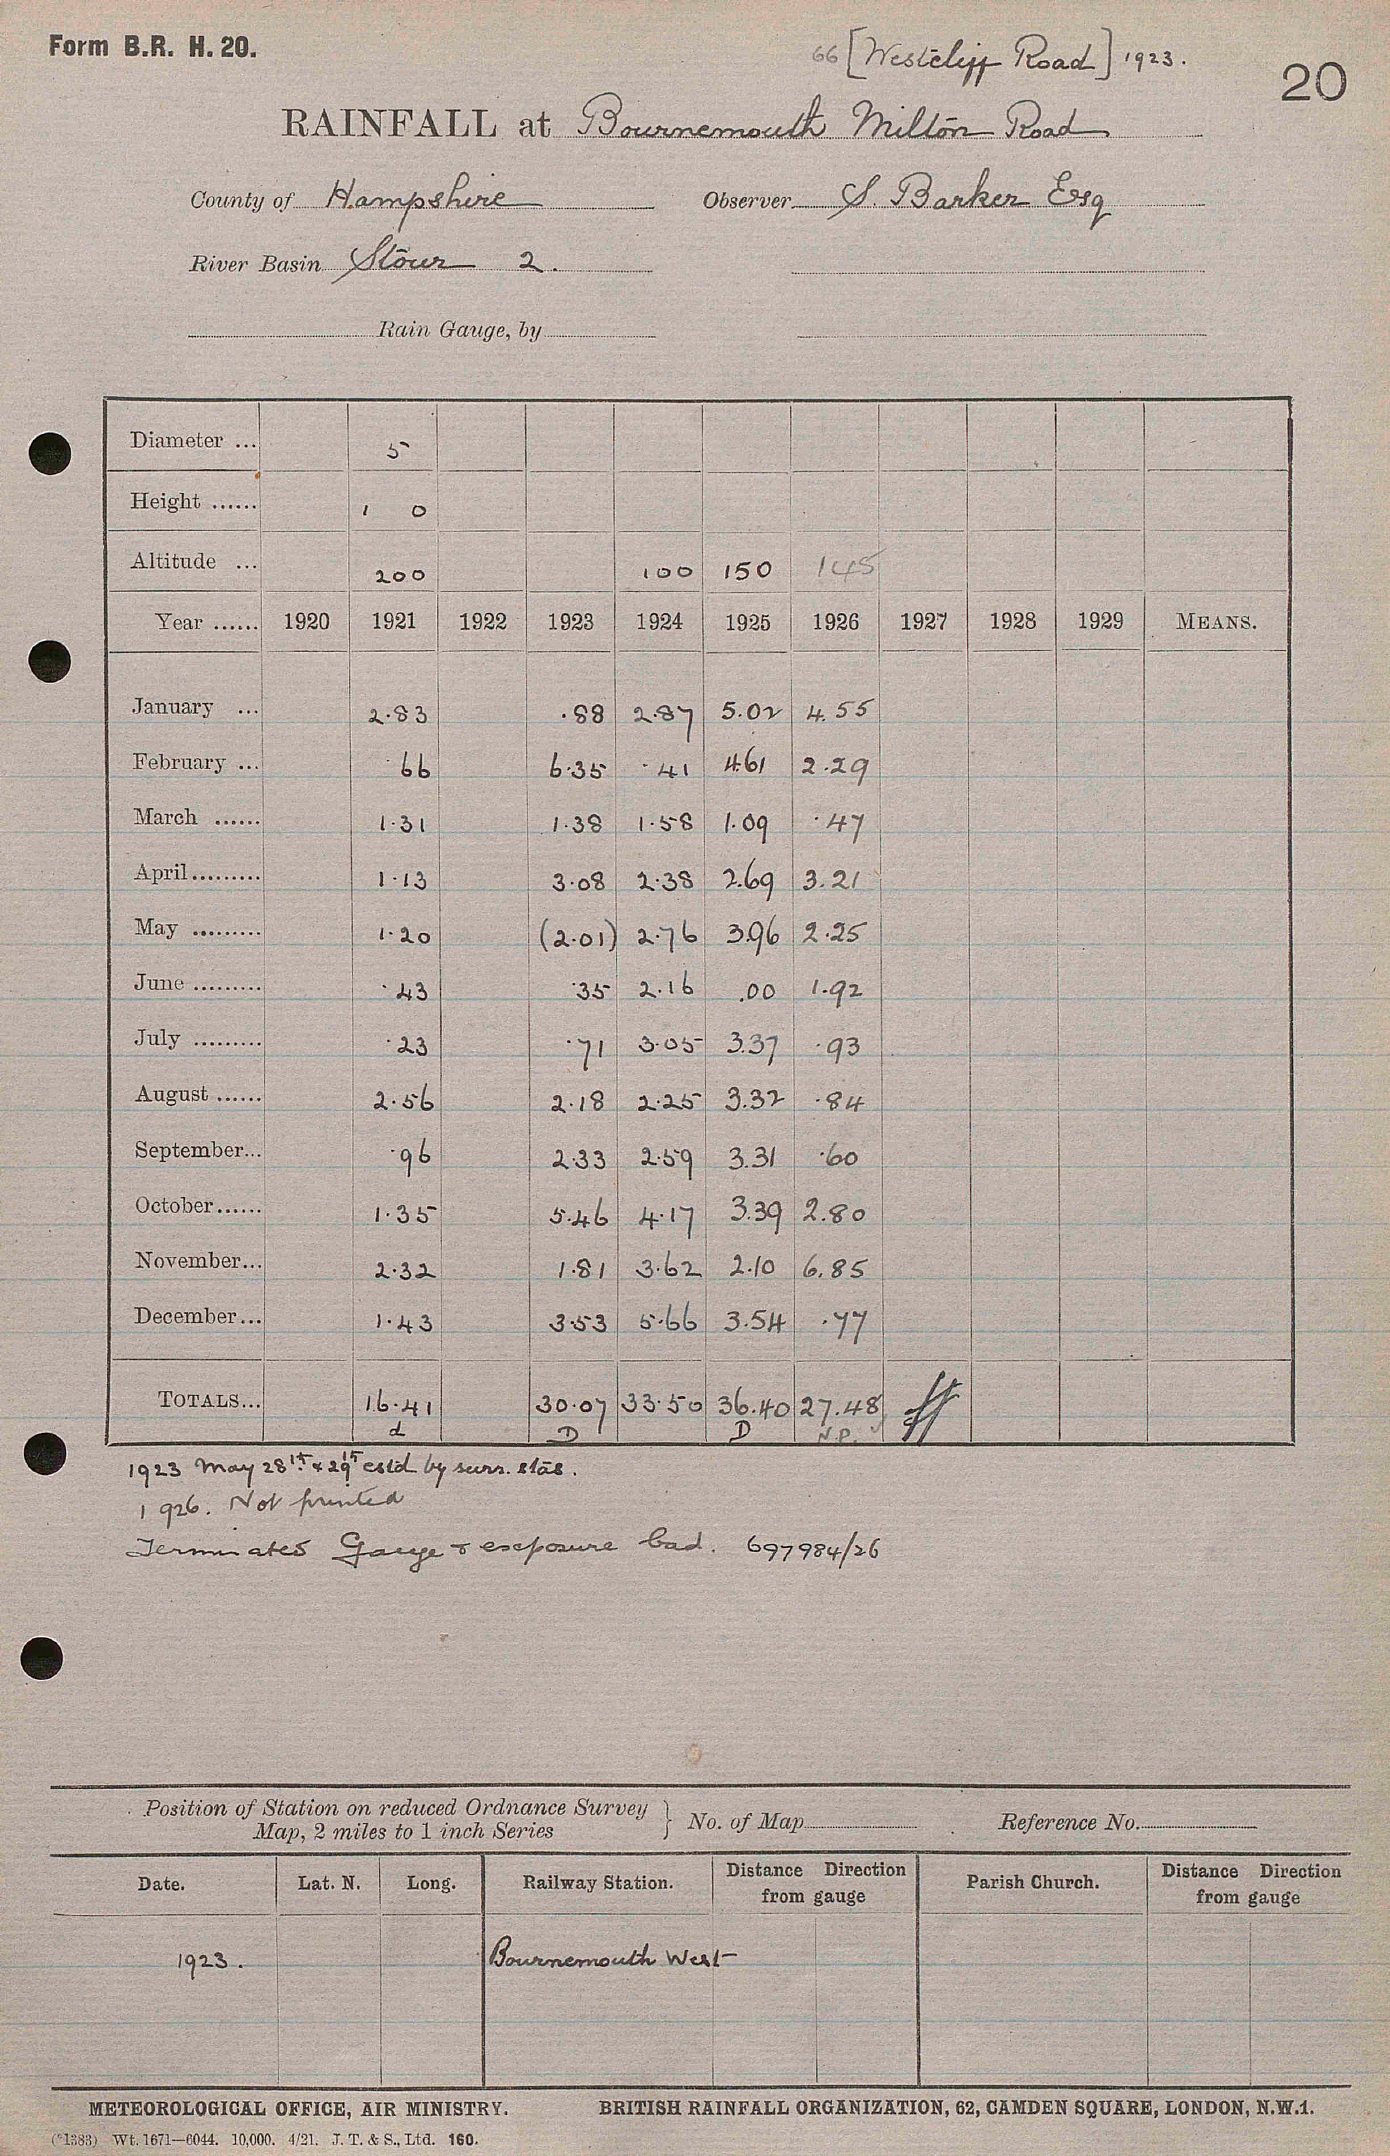 Form B.R. H. 20.
66 [Westcliff Road] 1923.
20
RAINFALL at Bournemouth Milton Road
County of Hampshire Observer S. Barker Esq
River Basin Stour 2.
Rain Gauge, by
Diameter ... 5
Height ...... 1 0
Altitude ... 200 100 150 145
Year ...... 1920 1921 1922 1923 1924 1925 1926 1927 1928 1929 MEANS.
January ... 2.83 .88 2.87 5.02 4.55
February ... .66 6.35 .41 4.61 2.29
March ...... 1.31 1.38 1.58 1.09 .47
April ......... 1.13 3.08 2.38 2.69 3.21
May ......... 1.20 (2.01) 2.76 3.96 2.25
June ......... .43 .35 2.16 .00 1.92
July ......... .23 .71 3.05 3.37 .93
August ...... 2.56 2.18 2.25 3.32 .84
September... .96 2.33 2.59 3.31 .60
October...... 1.35 5.46 4.17 3.39 2.80
November... 2.32 1.81 3.62 2.10 6.85
December... 1.43 3.53 5.66 3.54 .77
TOTALS... 16.41 30.07 33.50 36.40 27.48
d D D N.P.
1923 May 28th & 29th estd by surr. stas.
1926. Not printed
Terminated Gauge & exposure bad. 697984/26
Position of Station on reduced Ordnance Survey
Map, 2 miles to 1 inch Series } No. of Map Reference No.
Date. Lat. N. Long. Railway Station. Distance Direction from gauge Parish Church. Distance Direction from gauge
1923. Bournemouth West
METEOROLOGICAL OFFICE, AIR MINISTRY. BRITISH RAINFALL ORGANIZATION, 62, CAMDEN SQUARE, LONDON, N.W.1.
(*1383) Wt. 1671—6044. 10,000. 4/21. J. T. & S., Ltd. 160.